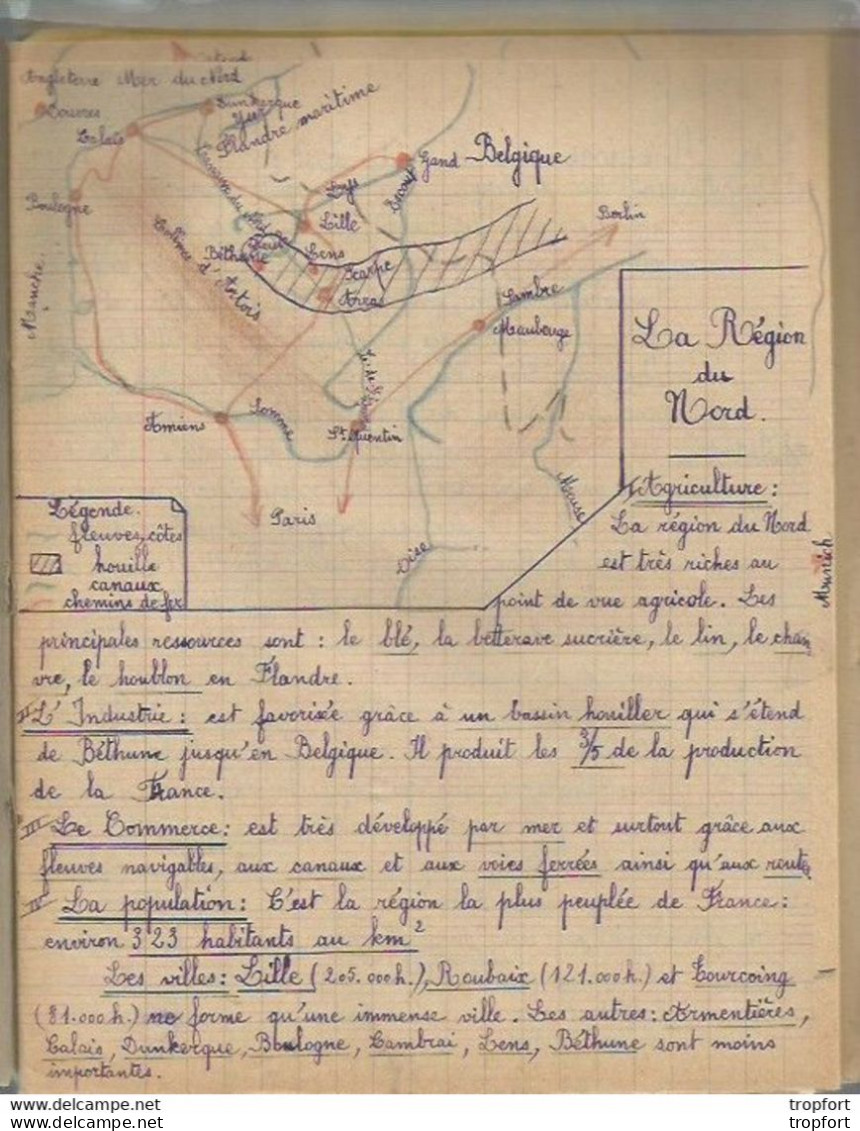 Angleterre Mer du Nord
Douvres
Dunkerque
Calais
Flandre maritime
Gand Belgique
Boulogne
Lys
Escaut
Lille
Berlin
Béthune
Lens
Scarpe
Collines d'Artois
Arras
Manche
Sambre
Maubeuge
La Région
du
Nord.
Amiens
Somme
St Quentin
Meuse
Paris
Oise
Munich
Légende.
fleuves, côtes
houille
canaux
chemins de fer
I Agriculture :
La région du Nord
est très riches au
point de vue agricole. Les
principales ressources sont : le blé, la betterave sucrière, le lin, le chan
vre, le houblon en Flandre.
II L'Industrie : est favorisée grâce à un bassin houiller qui s'étend
de Béthune jusqu'en Belgique. Il produit les 3/5 de la production
de la France.
III Le Commerce : est très développé par mer et surtout grâce aux
fleuves navigables, aux canaux et aux voies ferrées ainsi qu'aux route
IV La population : C'est la région la plus peuplée de France :
environ 323 habitants au km²
Les villes : Lille (205.000h.), Roubaix (121.000h.) et Tourcoing
(81.000h.) ne forme qu'une immense ville. Les autres : Armentières,
Calais, Dunkerque, Boulogne, Cambrai, Lens, Béthune sont moins
importantes.
www.delcampe.net
tropfort
www.delcampe.net
tropfort